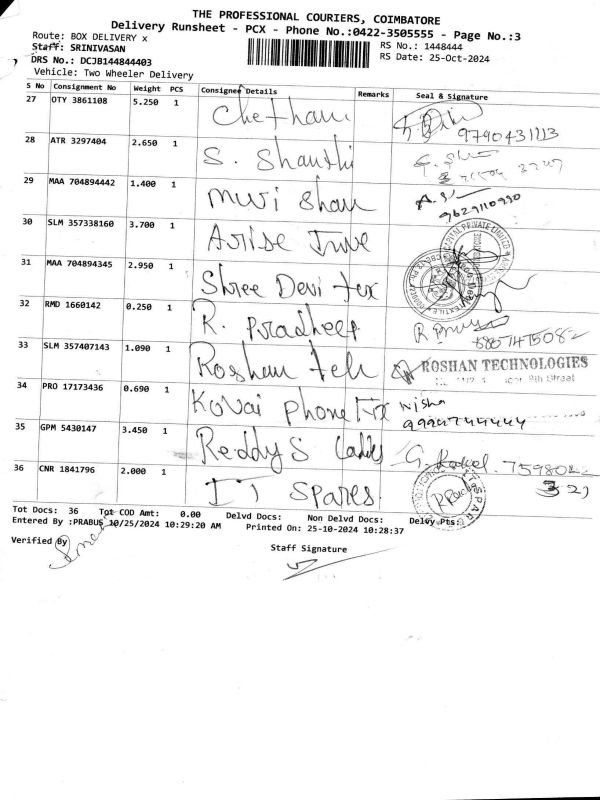 THE PROFESSIONAL COURIERS, COIMBATORE
Delivery Runsheet - PCX - Phone No.:0422-3505555 - Page No.:3
Route: BOX DELIVERY x RS No.: 1448444
Staff: SRINIVASAN RS Date: 25-Oct-2024
DRS No.: DCJB144844403
Vehicle: Two Wheeler Delivery
S No Consignment No Weight PCS Consignee Details Remarks Seal & Signature
27 OTY 3861108 5.250 1 Chethan 9790431113
28 ATR 3297404 2.650 1 S. Shanthi
29 MAA 704894442 1.400 1 9629110990
30 SLM 357338160 3.700 1 Arise
31 MAA 704894345 2.950 1 Shree Devi tex
32 RMD 1660142 0.250 1 R. Pradheep
33 SLM 357407143 1.090 1 Roshan Teh ROSHAN TECHNOLOGIES
34 PRO 17173436 0.690 1 Kovai Phone Fix Nisha
35 GPM 5430147 3.450 1 Reddy S 759802
36 CNR 1841796 2.000 1 IT Spares 321
Tot Docs: 36 Tot COD Amt: 0.00 Delvd Docs: Non Delvd Docs: Delvy Pts:
Entered By :PRABUS 10/25/2024 10:29:20 AM Printed On: 25-10-2024 10:28:37
Verified By
Staff Signature